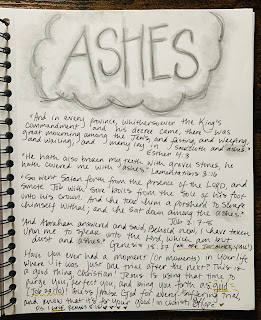 ASHES
"And in every province, whithersoever the King's
commandment and his decree came, there was
great mourning among the Jews, and fasting, and weeping,
and wailing; and many lay in sackcloth and ashes."
Esther 4:3
"He hath also broken my teeth with gravel stones, he
hath covered me with "ashes." Lamentations 3:16
"So went Satan forth from the presence of the LORD, and
smote Job with sore boils from the sole of his foot
unto his crown. And he took him a potsherd to scrape
himself withal; and he sat down among the ashes."
Job 2:7-8
"And Abraham answered and said, Behold now, I have taken
upon me to speak unto the Lord, which am but
dust and ashes."
Genesis 18:27
Have you ever had a moment (or moments) in your life
where it was just one trial after the next? This is
a good thing Christian! Jesus is using that time to
purge you, perfect you, and bring you forth as gold
(Job 23:10). Praise God for every suffering trial
and know that it's for your good in Christ!